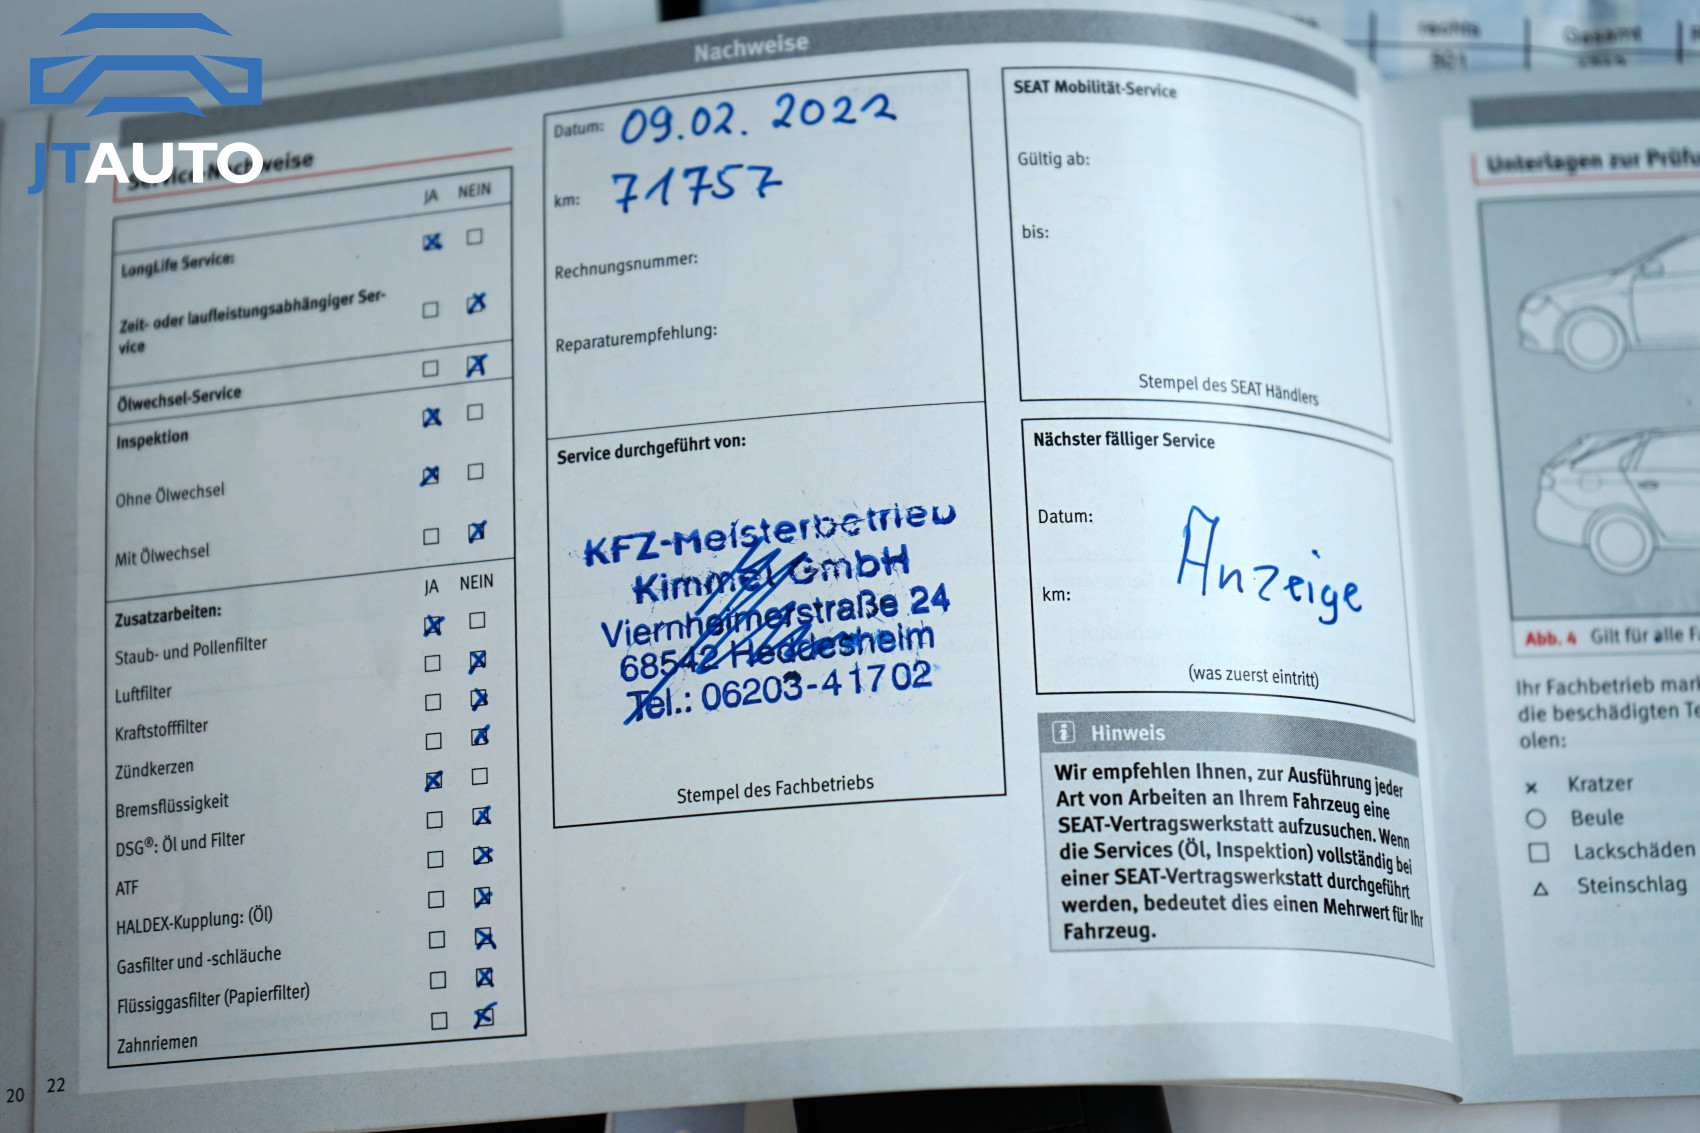 JTAUTO
Nachweise
Service-Nachweise
JA NEIN
LongLife Service:
Zeit- oder laufleistungsabhängiger Ser-
vice
Ölwechsel-Service
Inspektion
Ohne Ölwechsel
Mit Ölwechsel
JA NEIN
Zusatzarbeiten:
Staub- und Pollenfilter
Luftfilter
Kraftstofffilter
Zündkerzen
Bremsflüssigkeit
DSG®: Öl und Filter
ATF
HALDEX-Kupplung: (Öl)
Gasfilter und -schläuche
Flüssiggasfilter (Papierfilter)
Zahnriemen
20
22
Datum: 09.02.2022
km: 71757
Rechnungsnummer:
Reparaturempfehlung:
Service durchgeführt von:
KFZ-Meisterbetrieb
Kimmel GmbH
Viernheimerstraße 24
68542 Heddesheim
Tel.: 06203-41702
Stempel des Fachbetriebs
SEAT Mobilität-Service
Gültig ab:
bis:
Stempel des SEAT Händlers
Nächster fälliger Service
Datum:
Anzeige
km:
(was zuerst eintritt)
Hinweis
Wir empfehlen Ihnen, zur Ausführung jeder
Art von Arbeiten an Ihrem Fahrzeug eine
SEAT-Vertragswerkstatt aufzusuchen. Wenn
die Services (Öl, Inspektion) vollständig bei
einer SEAT-Vertragswerkstatt durchgeführt
werden, bedeutet dies einen Mehrwert für Ihr
Fahrzeug.
rechts
Gesamt
Unterlagen zur Prüfu
Abb. 4 Gilt für alle F
Ihr Fachbetrieb mark
die beschädigten Te
olen:
Kratzer
Beule
Lackschäden
Steinschlag